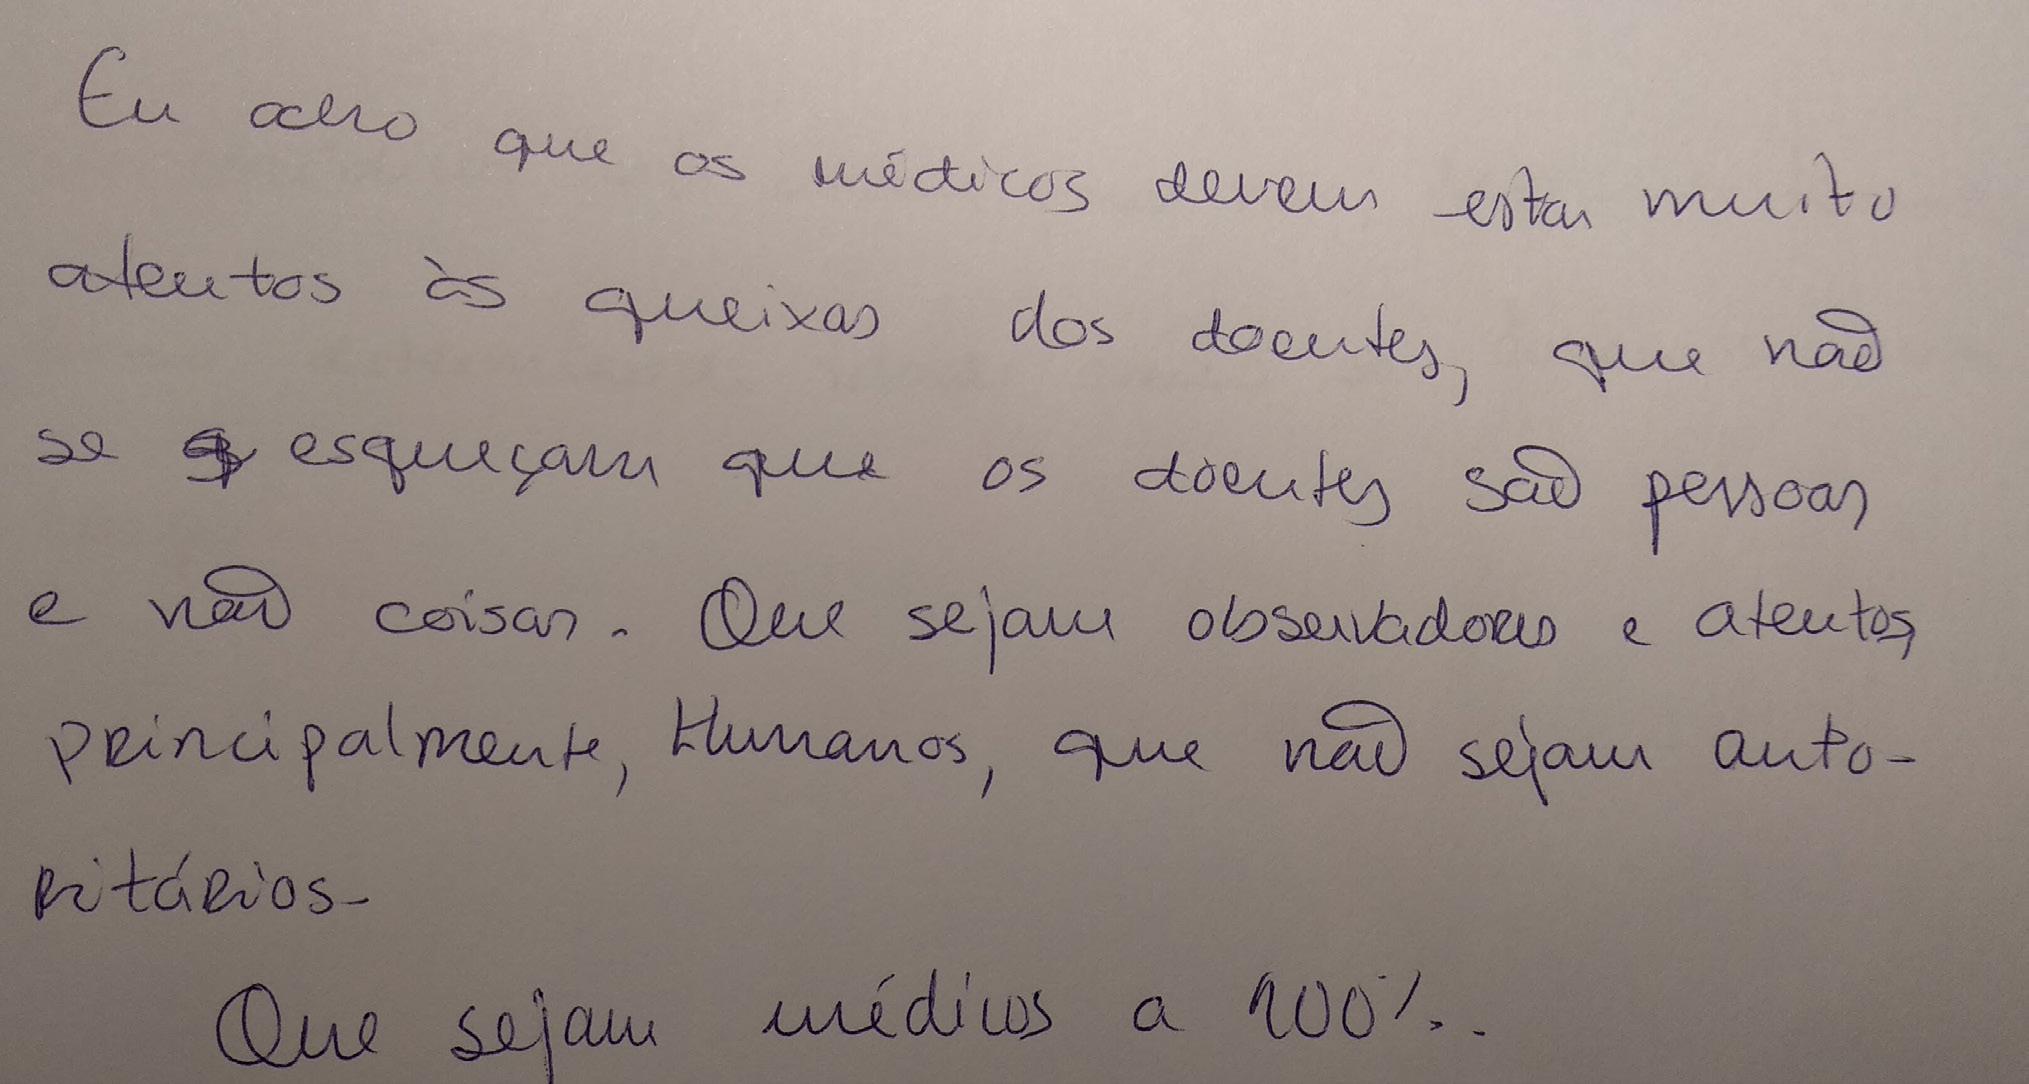 Eu acho que os médicos devem estar muito
atentos às queixas dos doentes, que não
se esqueçam que os doentes são pessoas
e não coisas. Que sejam observadores e atentos,
principalmente, Humanos, que não sejam auto-
ritários.
Que sejam médicos a 100%.